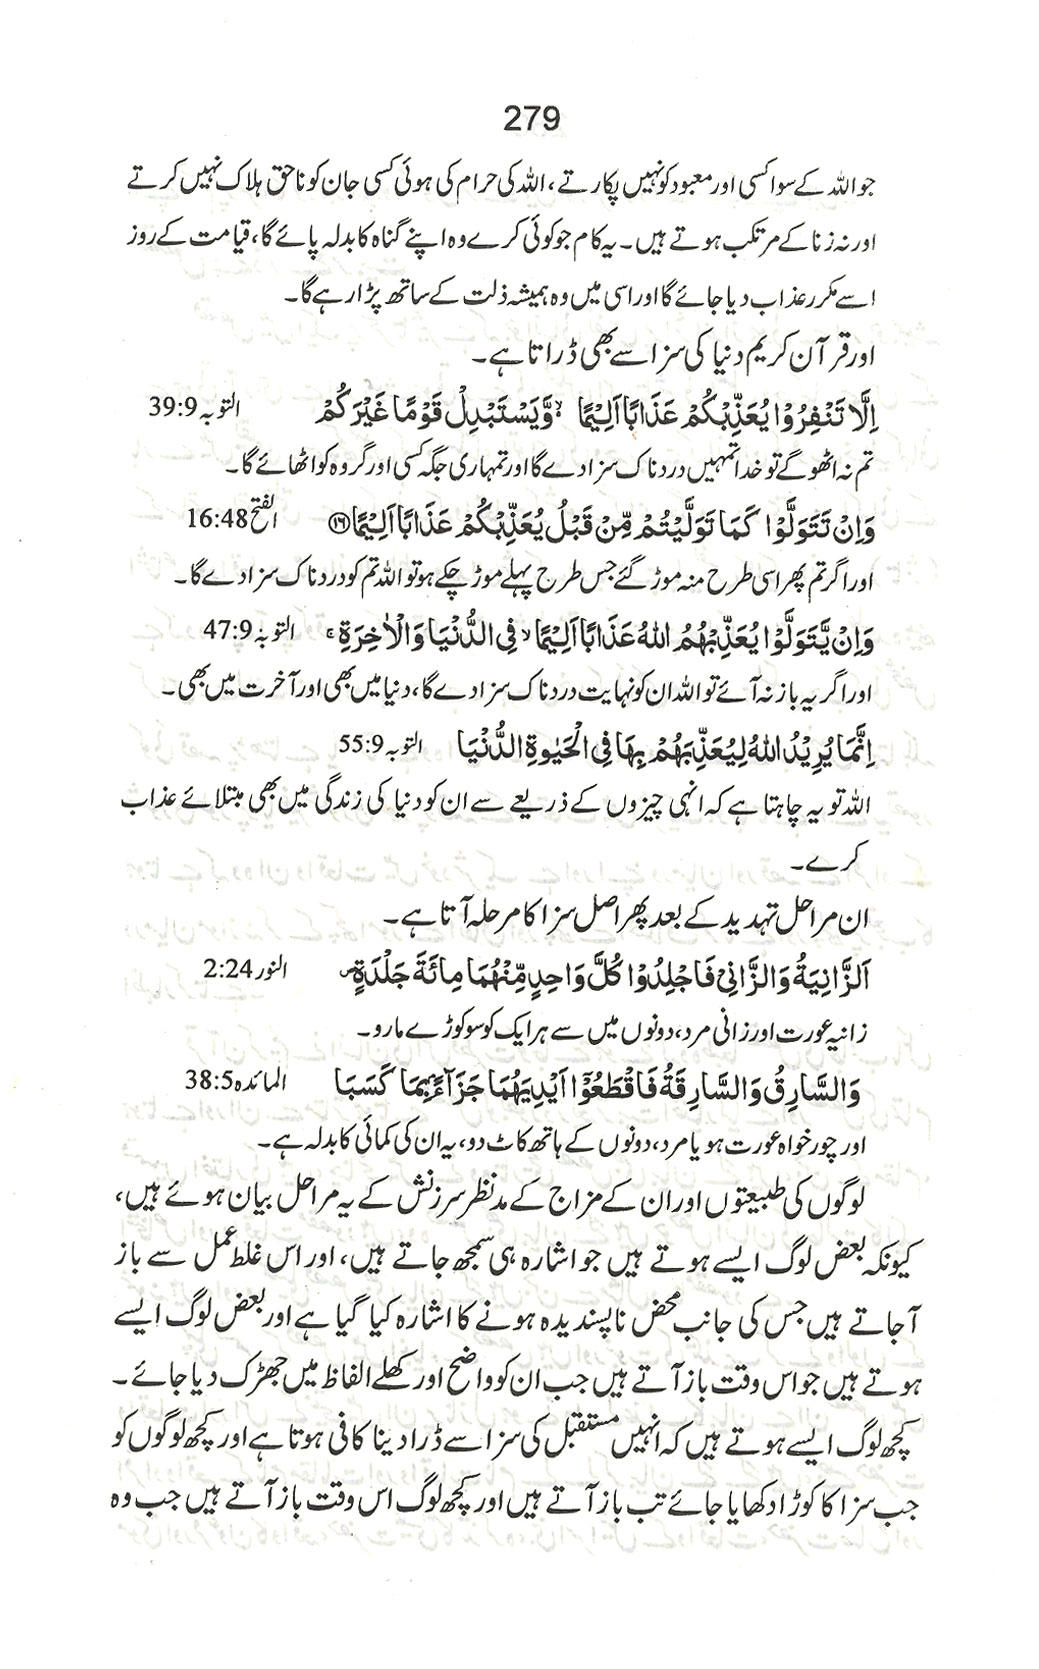 279
جو اللہ کے سوا کسی اور معبود کو نہیں پکارتے، اللہ کی حرام کی ہوئی کسی جان کو ناحق ہلاک نہیں کرتے
اور نہ زنا کے مرتکب ہوتے ہیں۔ یہ کام جو کوئی کرے وہ اپنے گناہ کا بدلہ پائے گا، قیامت کے روز
اسے مکرر عذاب دیا جائے گا اور اسی میں وہ ہمیشہ ذلت کے ساتھ پڑا رہے گا۔
اور قرآن کریم دنیا کی سزا سے بھی ڈراتا ہے۔
اِلَّا تَنْفِرُوْا یُعَذِّبْکُمْ عَذَابًا اَلِیْمًا ۙ وَّیَسْتَبْدِلْ قَوْمًا غَیْرَکُمْ التوبہ 39:9
تم نہ اٹھو گے تو خدا تمہیں دردناک سزا دے گا اور تمہاری جگہ کسی اور گروہ کو اٹھائے گا۔
وَاِنْ تَتَوَلَّوْا کَمَا تَوَلَّیْتُمْ مِّنْ قَبْلُ یُعَذِّبْکُمْ عَذَابًا اَلِیْمًا ﴿۱۶﴾ الفتح 16:48
اور اگر تم پھر اسی طرح منہ موڑ گئے جس طرح پہلے موڑ چکے ہو تو اللہ تم کو دردناک سزا دے گا۔
وَاِنْ یَّتَوَلَّوْا یُعَذِّبْہُمُ اللہُ عَذَابًا اَلِیْمًا ۙ فِی الدُّنْیَا وَالْاٰخِرَۃِ ۚ التوبہ 47:9
اور اگر یہ باز نہ آئے تو اللہ ان کو نہایت دردناک سزا دے گا، دنیا میں بھی اور آخرت میں بھی۔
اِنَّمَا یُرِیْدُ اللہُ لِیُعَذِّبَہُمْ بِہَا فِی الْحَیٰوۃِ الدُّنْیَا التوبہ 55:9
اللہ تو یہ چاہتا ہے کہ انہی چیزوں کے ذریعے سے ان کو دنیا کی زندگی میں بھی مبتلائے عذاب
کرے۔
ان مراحل تہدید کے بعد پھر اصل سزا کا مرحلہ آتا ہے۔
اَلزَّانِیَۃُ وَالزَّانِیْ فَاجْلِدُوْا کُلَّ وَاحِدٍ مِّنْہُمَا مِائَۃَ جَلْدَۃٍ ۪ النور 2:24
زانیہ عورت اور زانی مرد، دونوں میں سے ہر ایک کو سو کوڑے مارو۔
وَالسَّارِقُ وَالسَّارِقَۃُ فَاقْطَعُوْۤا اَیْدِیَہُمَا جَزَآءًۢ بِمَا کَسَبَا المائدہ 38:5
اور چور خواہ عورت ہو یا مرد، دونوں کے ہاتھ کاٹ دو، یہ ان کی کمائی کا بدلہ ہے۔
لوگوں کی طبیعتوں اور ان کے مزاج کے مدنظر سرزنش کے یہ مراحل بیان ہوئے ہیں،
کیونکہ بعض لوگ ایسے ہوتے ہیں جو اشارہ ہی سمجھ جاتے ہیں، اور اس غلط عمل سے باز
آ جاتے ہیں جس کی جانب محض ناپسندیدہ ہونے کا اشارہ کیا گیا ہے اور بعض لوگ ایسے
ہوتے ہیں جو اس وقت باز آتے ہیں جب ان کو واضح اور کھلے الفاظ میں جھڑک دیا جائے۔
کچھ لوگ ایسے ہوتے ہیں کہ انہیں مستقبل کی سزا سے ڈرا دینا کافی ہوتا ہے اور کچھ لوگوں کو
جب سزا کا کوڑا دکھایا جائے تب باز آتے ہیں اور کچھ لوگ اس وقت باز آتے ہیں جب وہ